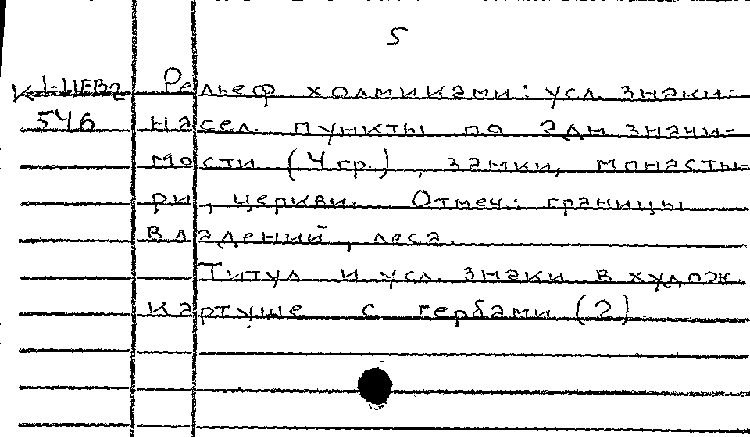 5
Рельеф холмиками: усл. знаки:
546 насел. пункты по адм значи-
мости (4 гр.), замки, монасты-
ри, церкви. Отмеч.: границы
владений, леса.
Титул и усл. знаки в худож.
картуше с гербами (2)